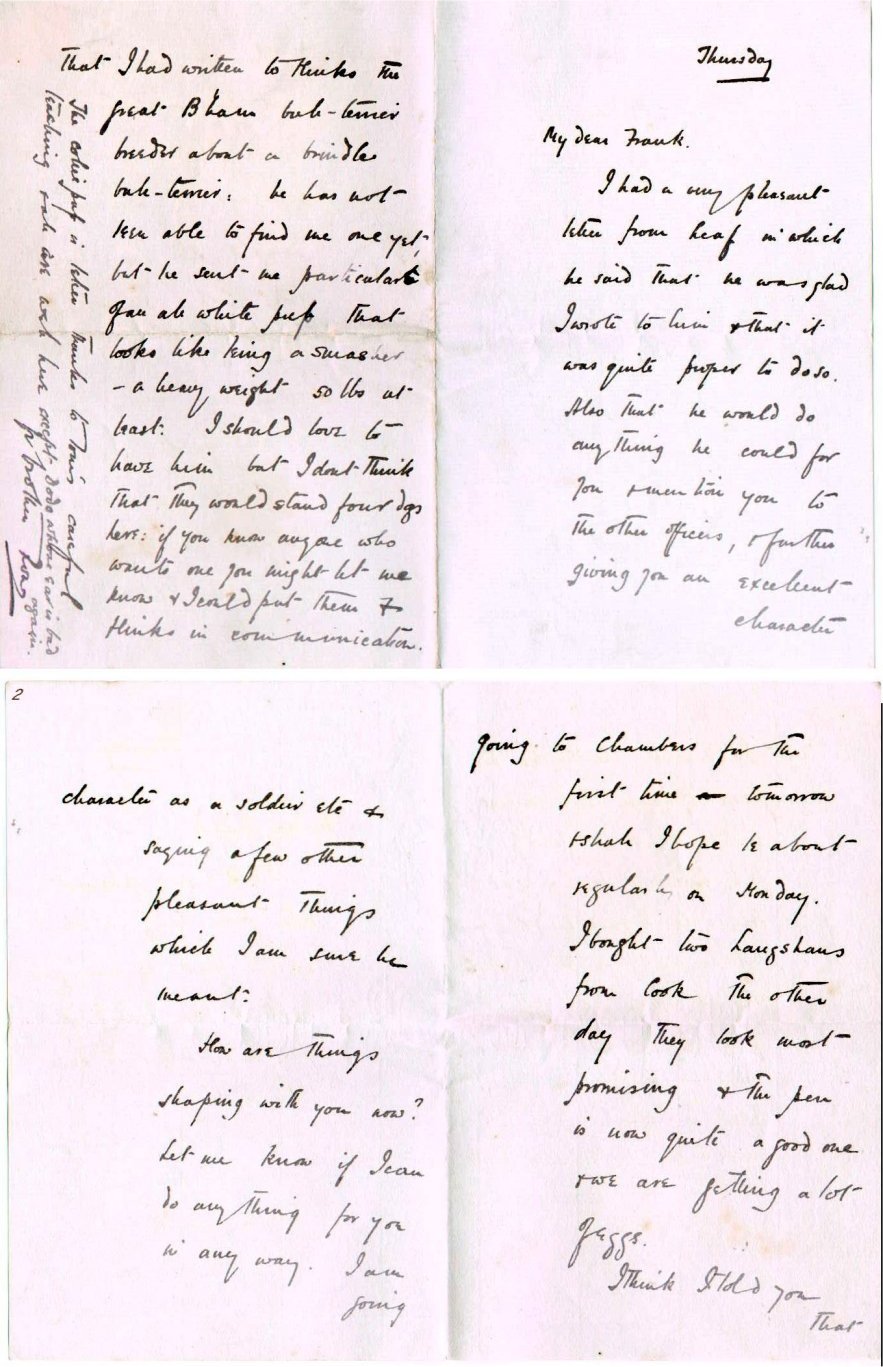 Thursday
My dear Frank.
I had a very pleasant
letter from Leaf in which
he said that he was glad
I wrote to him & that it
was quite proper to do so.
Also that he would do
anything he could for
you & mention you to
the other officers, & further
giving you an excellent
character
2
character as a soldier etc &
saying a few other
pleasant things
which I am sure he
meant.
How are things
shaping with you now?
Let me know if I can
do anything for you
in any way. I am
going
going to Chambers for the
first time tomorrow
& shall I hope be about
regularly on Monday.
I bought two Langshans
from Cook the other
day they look most
promising & the pen
is now quite a good one
& we are getting a lot
of eggs.
I think I told you
that
that I had written to Hinks the
great B'ham bull-terrier
breeder about a brindle
bull-terrier: he has not
been able to find me one yet,
but he sent me particulars
of an all white pup that
looks like being a smasher
- a heavy weight 50 lbs at
least. I should love to
have him but I dont think
that they would stand four dogs
here: if you know anyone who
wants one you might let me
know & I could put them &
Hinks in communication.
The collie pup is better thanks to Tom's careful
teaching & all are well here except Dodo whose ear is bad
again.
Yr brother Tony